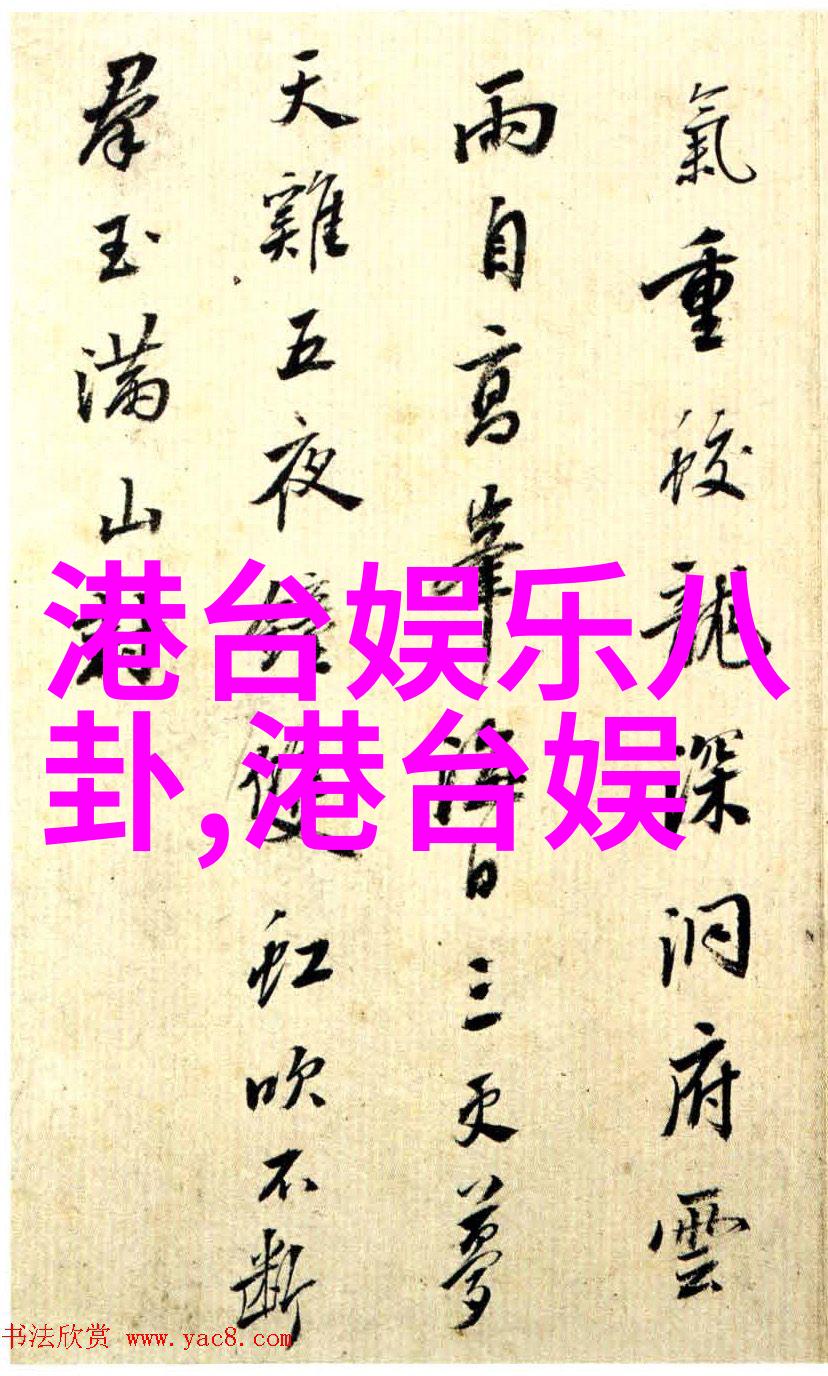 氣重蛟龍深洞府雲
雨自高峯海日三更夢
天雞五夜鐘雙虹吹不斷
羣玉滿山
港台娱乐八
卦,港台娱
书法欣赏 www.yac8.com